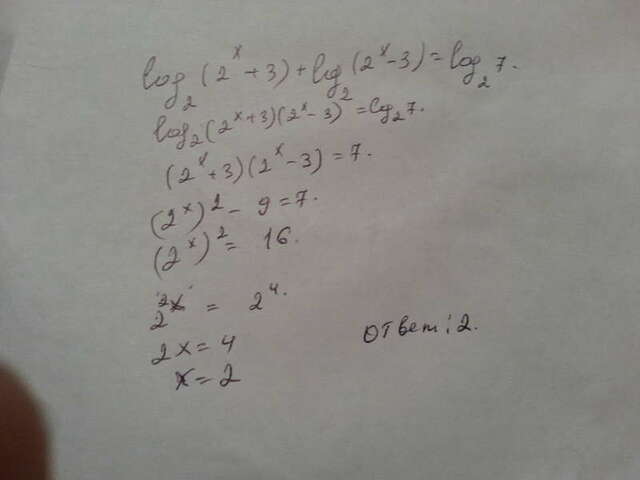 log₂(2ˣ+3)+log₂(2ˣ-3)=log₂7.
log₂(2ˣ+3)(2ˣ-3)=log₂7.
(2ˣ+3)(2ˣ-3)=7.
(2ˣ)²-9=7.
(2ˣ)²=16.
2²ˣ=2⁴.
2x=4
x=2
Ответ: 2.